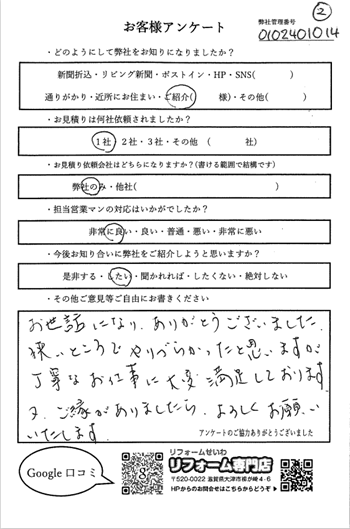 ②
お客様アンケート
弊社管理番号
0102401014
・どのようにして弊社をお知りになりましたか？
新聞折込・リビング新聞・ポストイン・HP・SNS(　　　　)
通りがかり・近所にお住まい・ご紹介(　　　様)・その他(　　　　)
・お見積りは何社依頼されましたか？
1社・2社・3社・その他（　　　　社）
・お見積り依頼会社はどちらになりますか？(書ける範囲で結構です)
弊社のみ・他社(　　　　　　　　　　)
・担当営業マンの対応はいかがでしたか？
非常に良い・良い・普通・悪い・非常に悪い
・今後お知り合いに弊社をご紹介しようと思いますか？
是非する・したい・聞かれれば・したくない・絶対しない
・その他ご意見等ご自由にお書きください
お世話になり、ありがとうございました。
狭いところでやりづらかったと思いますが
丁寧なお仕事に大変満足しております
又、ご縁がありましたら、よろしくお願い
いたします
アンケートのご協力ありがとうございました
Google口コミ
リフォームせいわ
リフォーム専門店
〒520-0022 滋賀県大津市柳が崎4-6
HPからのお問合せはこちらからどうぞ▶